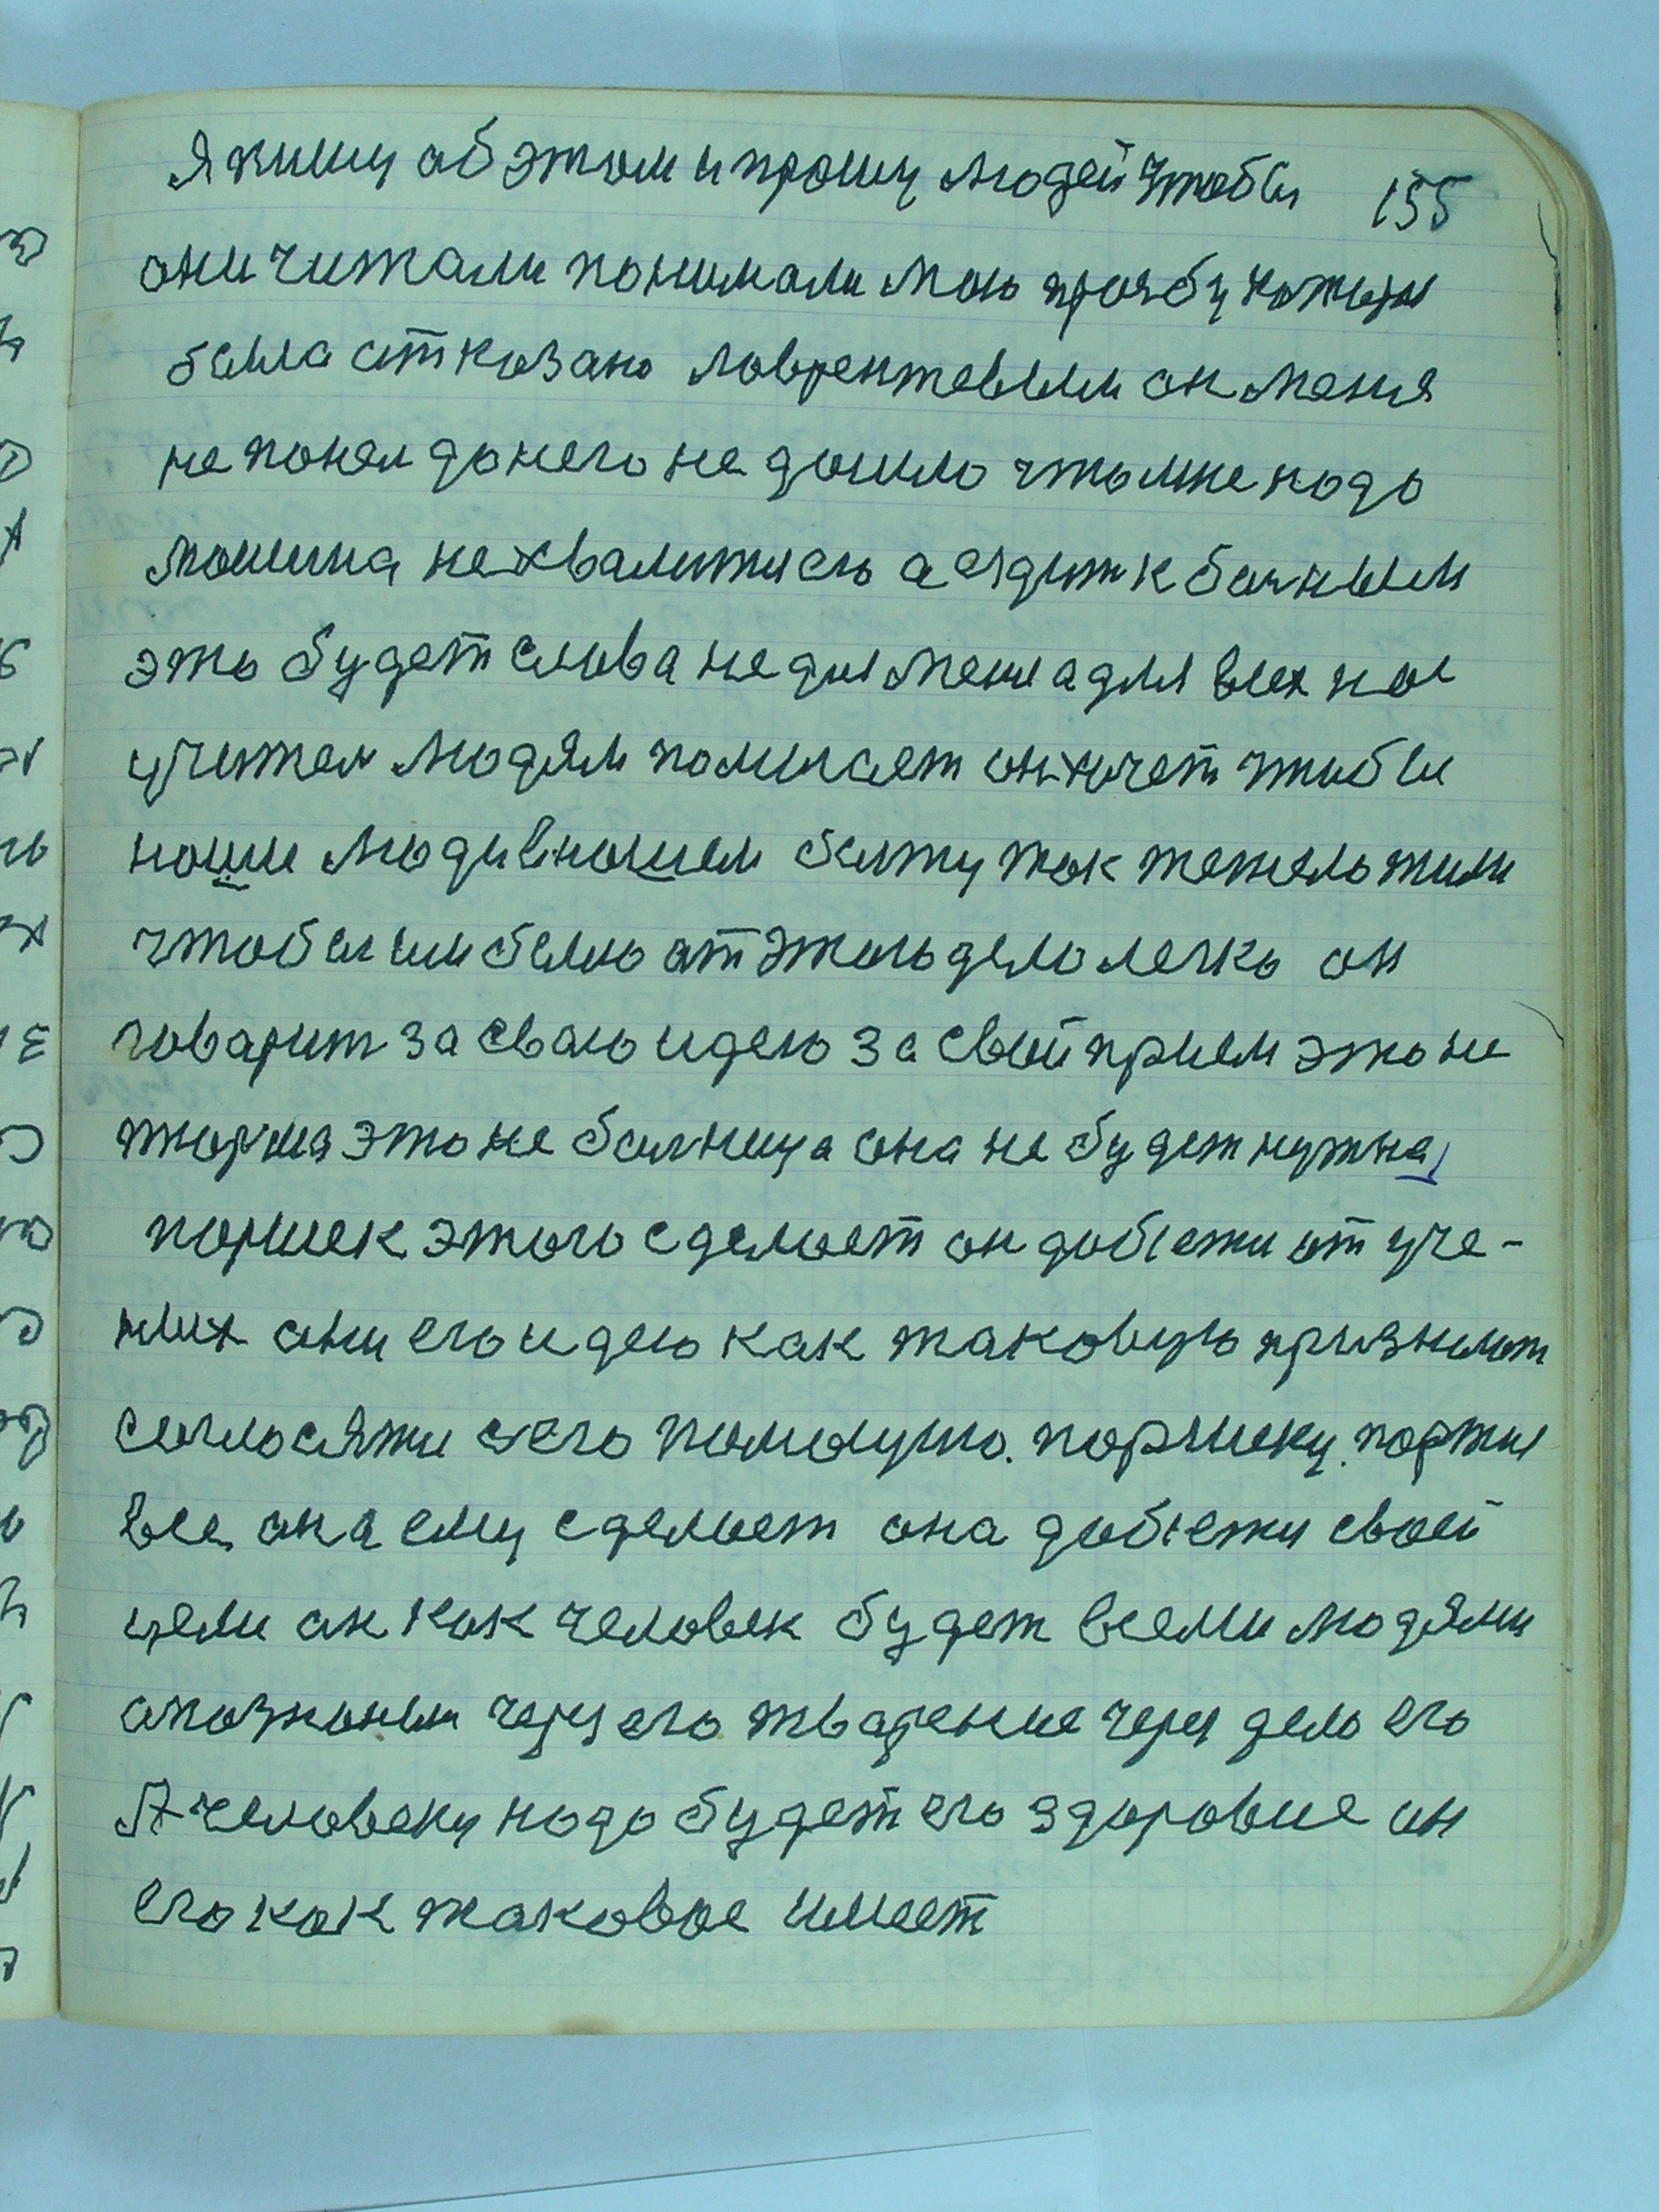 Я пишу об этом и прошу людей чтобы 155
они читали понимали мою прозбу
была отказано Лаврентевым он меня
не понел до него не дошло что мне надо
машина не хвалитися а ездит к бачным
это будет слова не для меня а для всех нас
учител людям помогает он хочет чтобы
наши люди в нашем быту так тежело жили
чтобы им было от этого дело легко он
говарит за сваю идею за свой прием это не
тюрма это не болница она не будет нужна
поршек этого сделает он добежи от уче-
ных они его идею как таковую признают
согласяжи с его поршеку. партия
все она ему сделает она добежи своей
цели он как человек будет всеми людями
опознаным через его творение через дело его
А человеку надо будет его здоровие он
его как таковое имеет